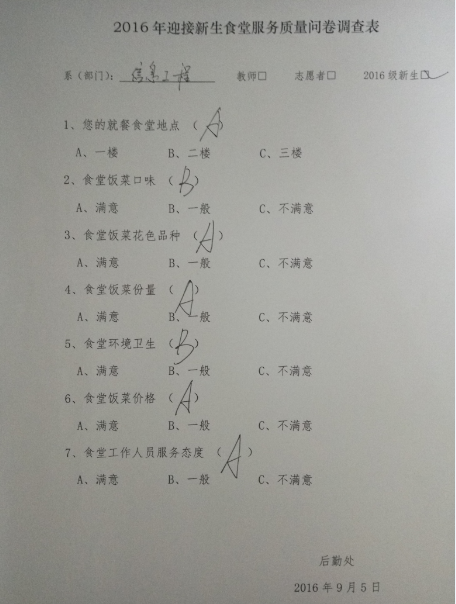 2016年迎接新生食堂服务质量问卷调查表
系（部门）：信息工程 教师□ 志愿者□ 2016级新生☑
1、您的就餐食堂地点（A）
A、一楼 B、二楼 C、三楼
2、食堂饭菜口味（B）
A、满意 B、一般 C、不满意
3、食堂饭菜花色品种（A）
A、满意 B、一般 C、不满意
4、食堂饭菜份量（A）
A、满意 B、一般 C、不满意
5、食堂环境卫生（B）
A、满意 B、一般 C、不满意
6、食堂饭菜价格（A）
A、满意 B、一般 C、不满意
7、食堂工作人员服务态度（A）
A、满意 B、一般 C、不满意
后勤处
2016年9月5日